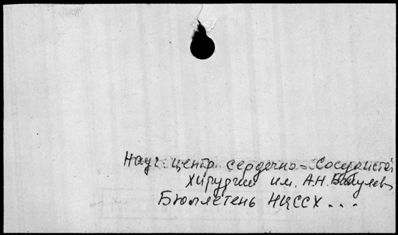 Науч. центр сердечно-сосудистой
хирургии им. А.Н. Бакулева
Бюллетень НЦССХ...